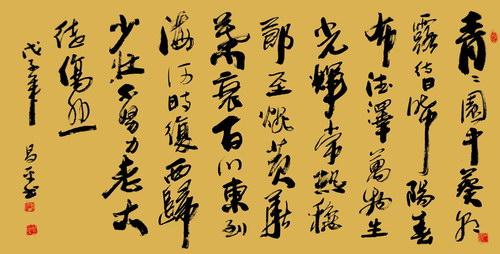 青〻園中葵朝
露待日晞陽春
布德澤萬物生
光輝常恐穐
節至焜黄華
葉衰百川東到
海何時復西歸
少壯不努力老大
徒傷悲
戊子年